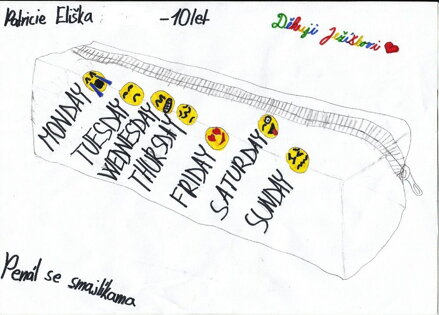 Patricie Eliška -10let
Děkuji Ježíškovi
MONDAY
TUESDAY
WEDNESDAY
THURSDAY
FRIDAY
SATURDAY
SUNDAY
Penál se smajlíkama